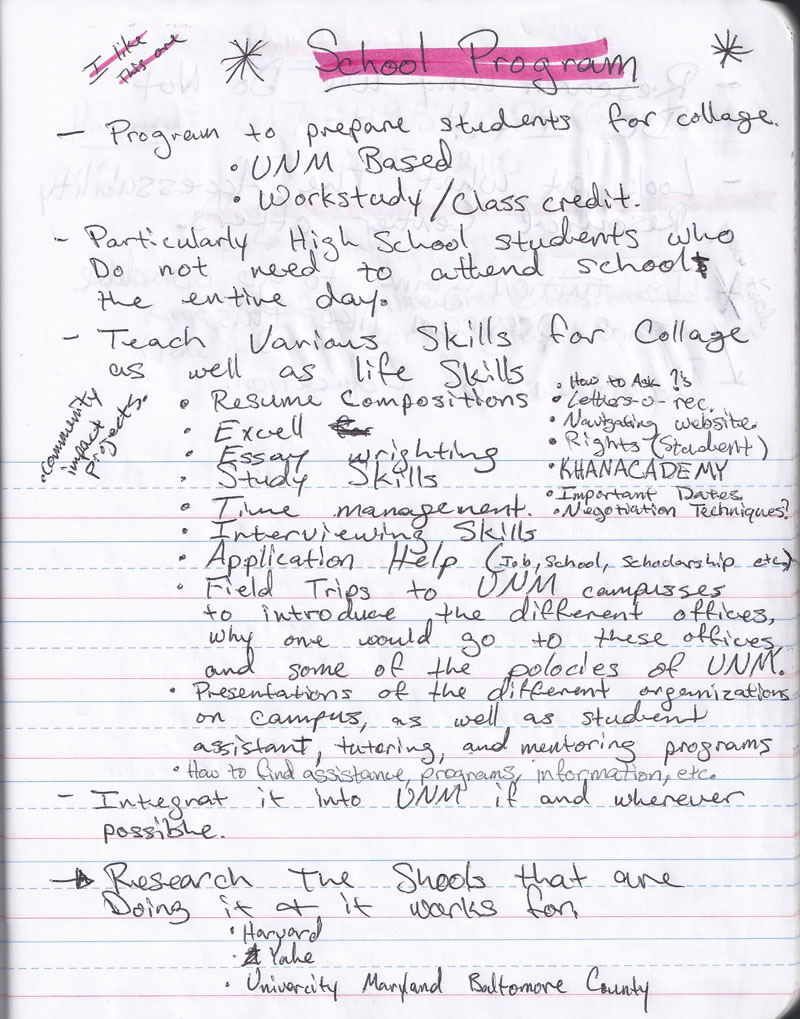 I like
this one
School Program
- Program to prepare students for collage.
• UNM Based
• Workstudy/Class credit.
- Particularly High School students who
Do not need to attend school
the entire day.
- Teach Various Skills for Collage
as well as life Skills
• Community
impact
projects.
• Resume Compositions
• Excell
• Essay wrighting
• Study Skills
• Time management.
• Interviewing Skills
• Application Help (Job, School, Schodarship etc.)
• Field Trips to UNM campusses
to introduce the different offices,
why one would go to these offices,
and some of the polocies of UNM.
• How to Ask ?'s
• Letters-o-rec.
• Navigating website.
• Rights (Student)
• KHANACADEMY
• Important Dates
• Negotiation Techniques?
• Presentations of the different organizations
on campus, as well as student
assistant, tutoring, and mentoring programs
• How to find assistance, programs, information, etc.
- Integrat it into UNM if and wherever
possible.
→ Research The Shools that are
Doing it & it works for,
• Harvard
• Yale
• Univercity Maryland Baltomore County